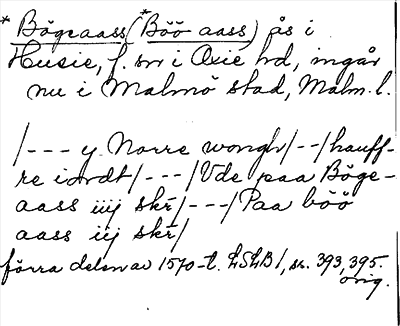 *Bögeaass (*Böö aass) ås i
Husie, f. sn i Oxie hd, ingår
nu i Malmö stad, Malm. l.
/--- y Norre wongh/--/hauff-
re iordt/---/Vde paa Böge-
aass iiij skr̄/---/Paa böö
aass iij skr̄/
förra delen av 1570-t. LSLB1, sn. 393, 395.
orig.